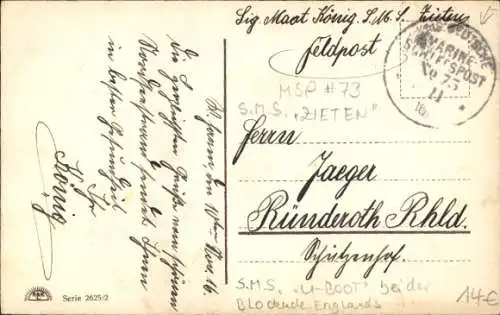 Sig. Maat König. S.M.S. Zieten
Feldpost
MARINE-
SCHIFFSPOST
No 73
11
16
MSP #73
S.M.S. „ZIETEN"
Herrn
Jaeger
Ründeroth Rhld.
Schützenhof
S.M.S. „U-BOOT" bei der
Blockade Englands
14€
den 10ten Nov. 16.
Die herzlichsten Grüße vom schönen
Nordseestrand sendet Ihnen
in bester Gesundheit
Ihr
König
Serie 2625/2